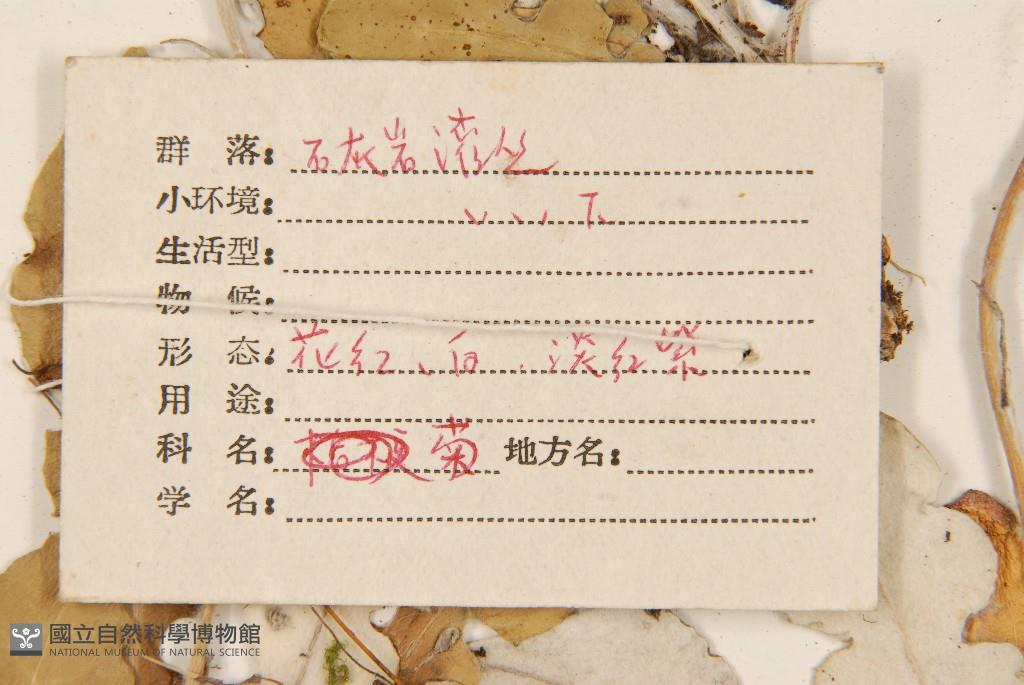 群 落: 石灰岩灌丛
小环境: 〃 〃 下
生活型:
物 候:
形 态: 花红、白、淡红紫
用 途:
科 名: 菊 地方名:
学 名:
國立自然科學博物館
NATIONAL MUSEUM OF NATURAL SCIENCE